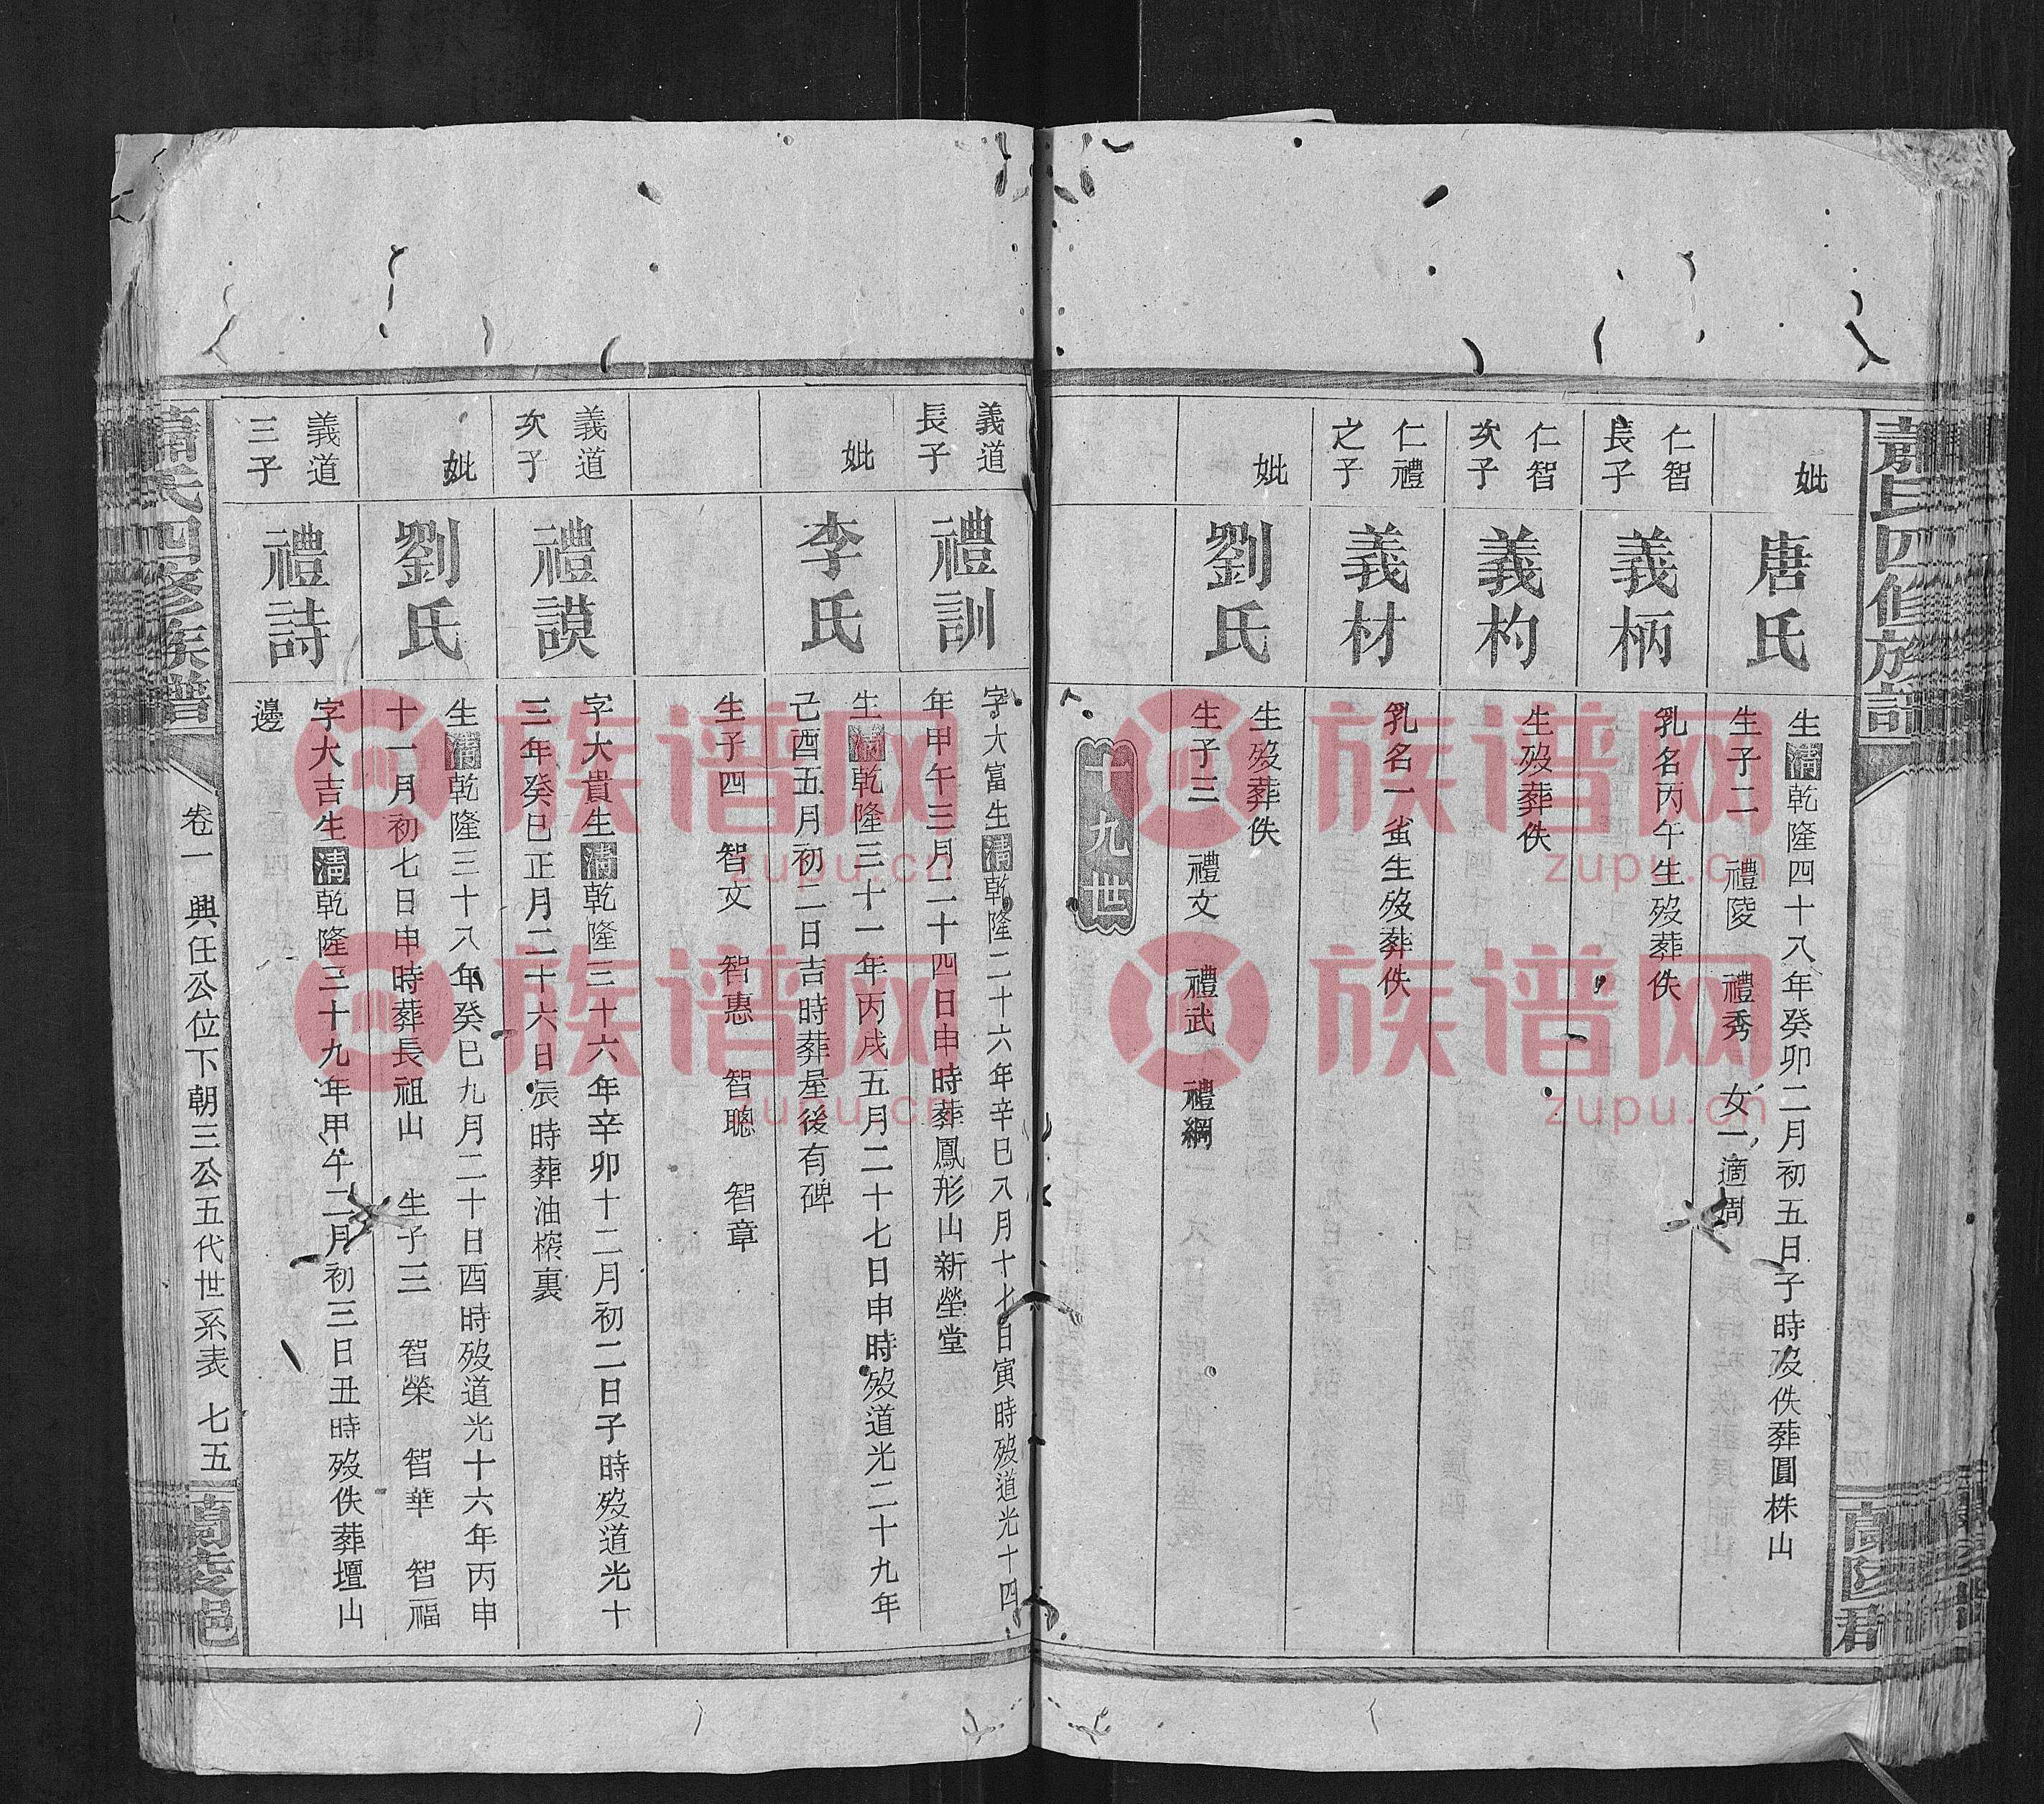 蕭氏四修族譜
妣
唐氏
生清乾隆四十八年癸卯二月初五日子時歿佚葬圓株山
生子二 禮陵 禮秀 女一適周
仁智
長子
義柄
乳名丙午生歿葬佚
仁智
次子
義杓
生歿葬佚
仁禮
之子
義材
乳名一蚩生歿葬佚
妣
劉氏
生歿葬佚
生子三 禮文 禮武 禮綱
十九世
義道
長子
禮訓
字大富生清乾隆二十六年辛巳八月十七日寅時歿道光十四
年甲午三月二十四日申時葬鳳形山新塋堂
妣
李氏
生清乾隆三十一年丙戌五月二十七日申時歿道光二十九年
己酉五月初二日吉時葬屋後有碑
生子四 智文 智惠 智聰 智章
義道
次子
禮謨
字大貴生清乾隆三十六年辛卯十二月初二日子時歿道光十
三年癸巳正月二十六日辰時葬油榨裏
妣
劉氏
生清乾隆三十八年癸巳九月二十日酉時歿道光十六年丙申
十一月初七日申時葬長祖山 生子三 智榮 智華 智福
義道
三子
禮詩
字大吉生清乾隆三十九年甲午二月初三日丑時歿佚葬壇山
邊
蕭氏四修族譜
卷一 興任公位下朝三公五代世系表 七五
族谱网
zupu.cn
族谱网
zupu.cn
族谱网
zupu.cn
族谱网
zupu.cn